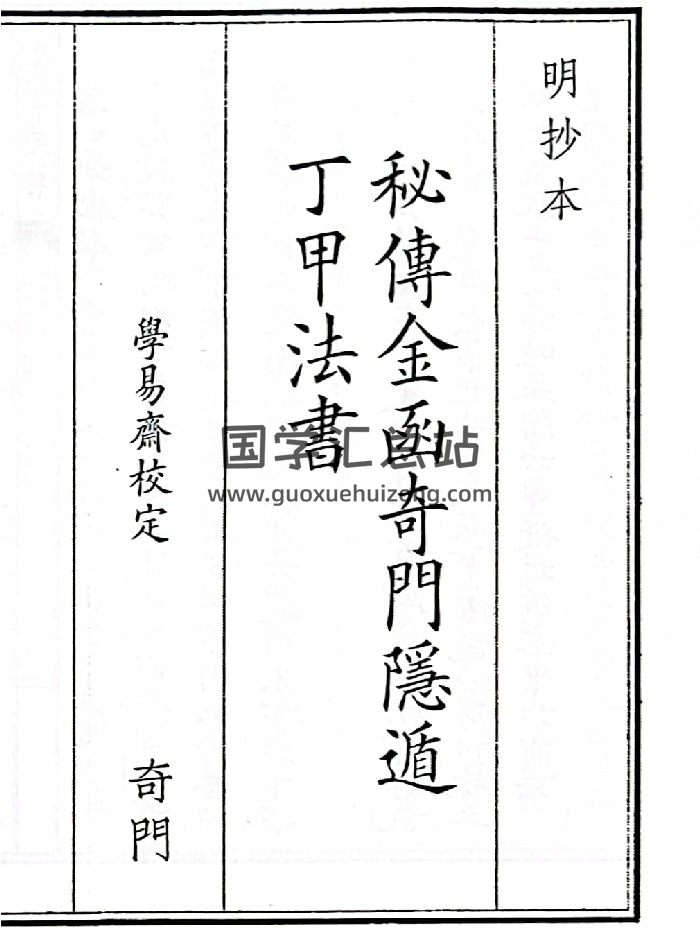 明抄本
秘傳金函奇門隱遁
丁甲法書
學易齋校定
奇門
国学汇总站
www.guoxuehuizong.com